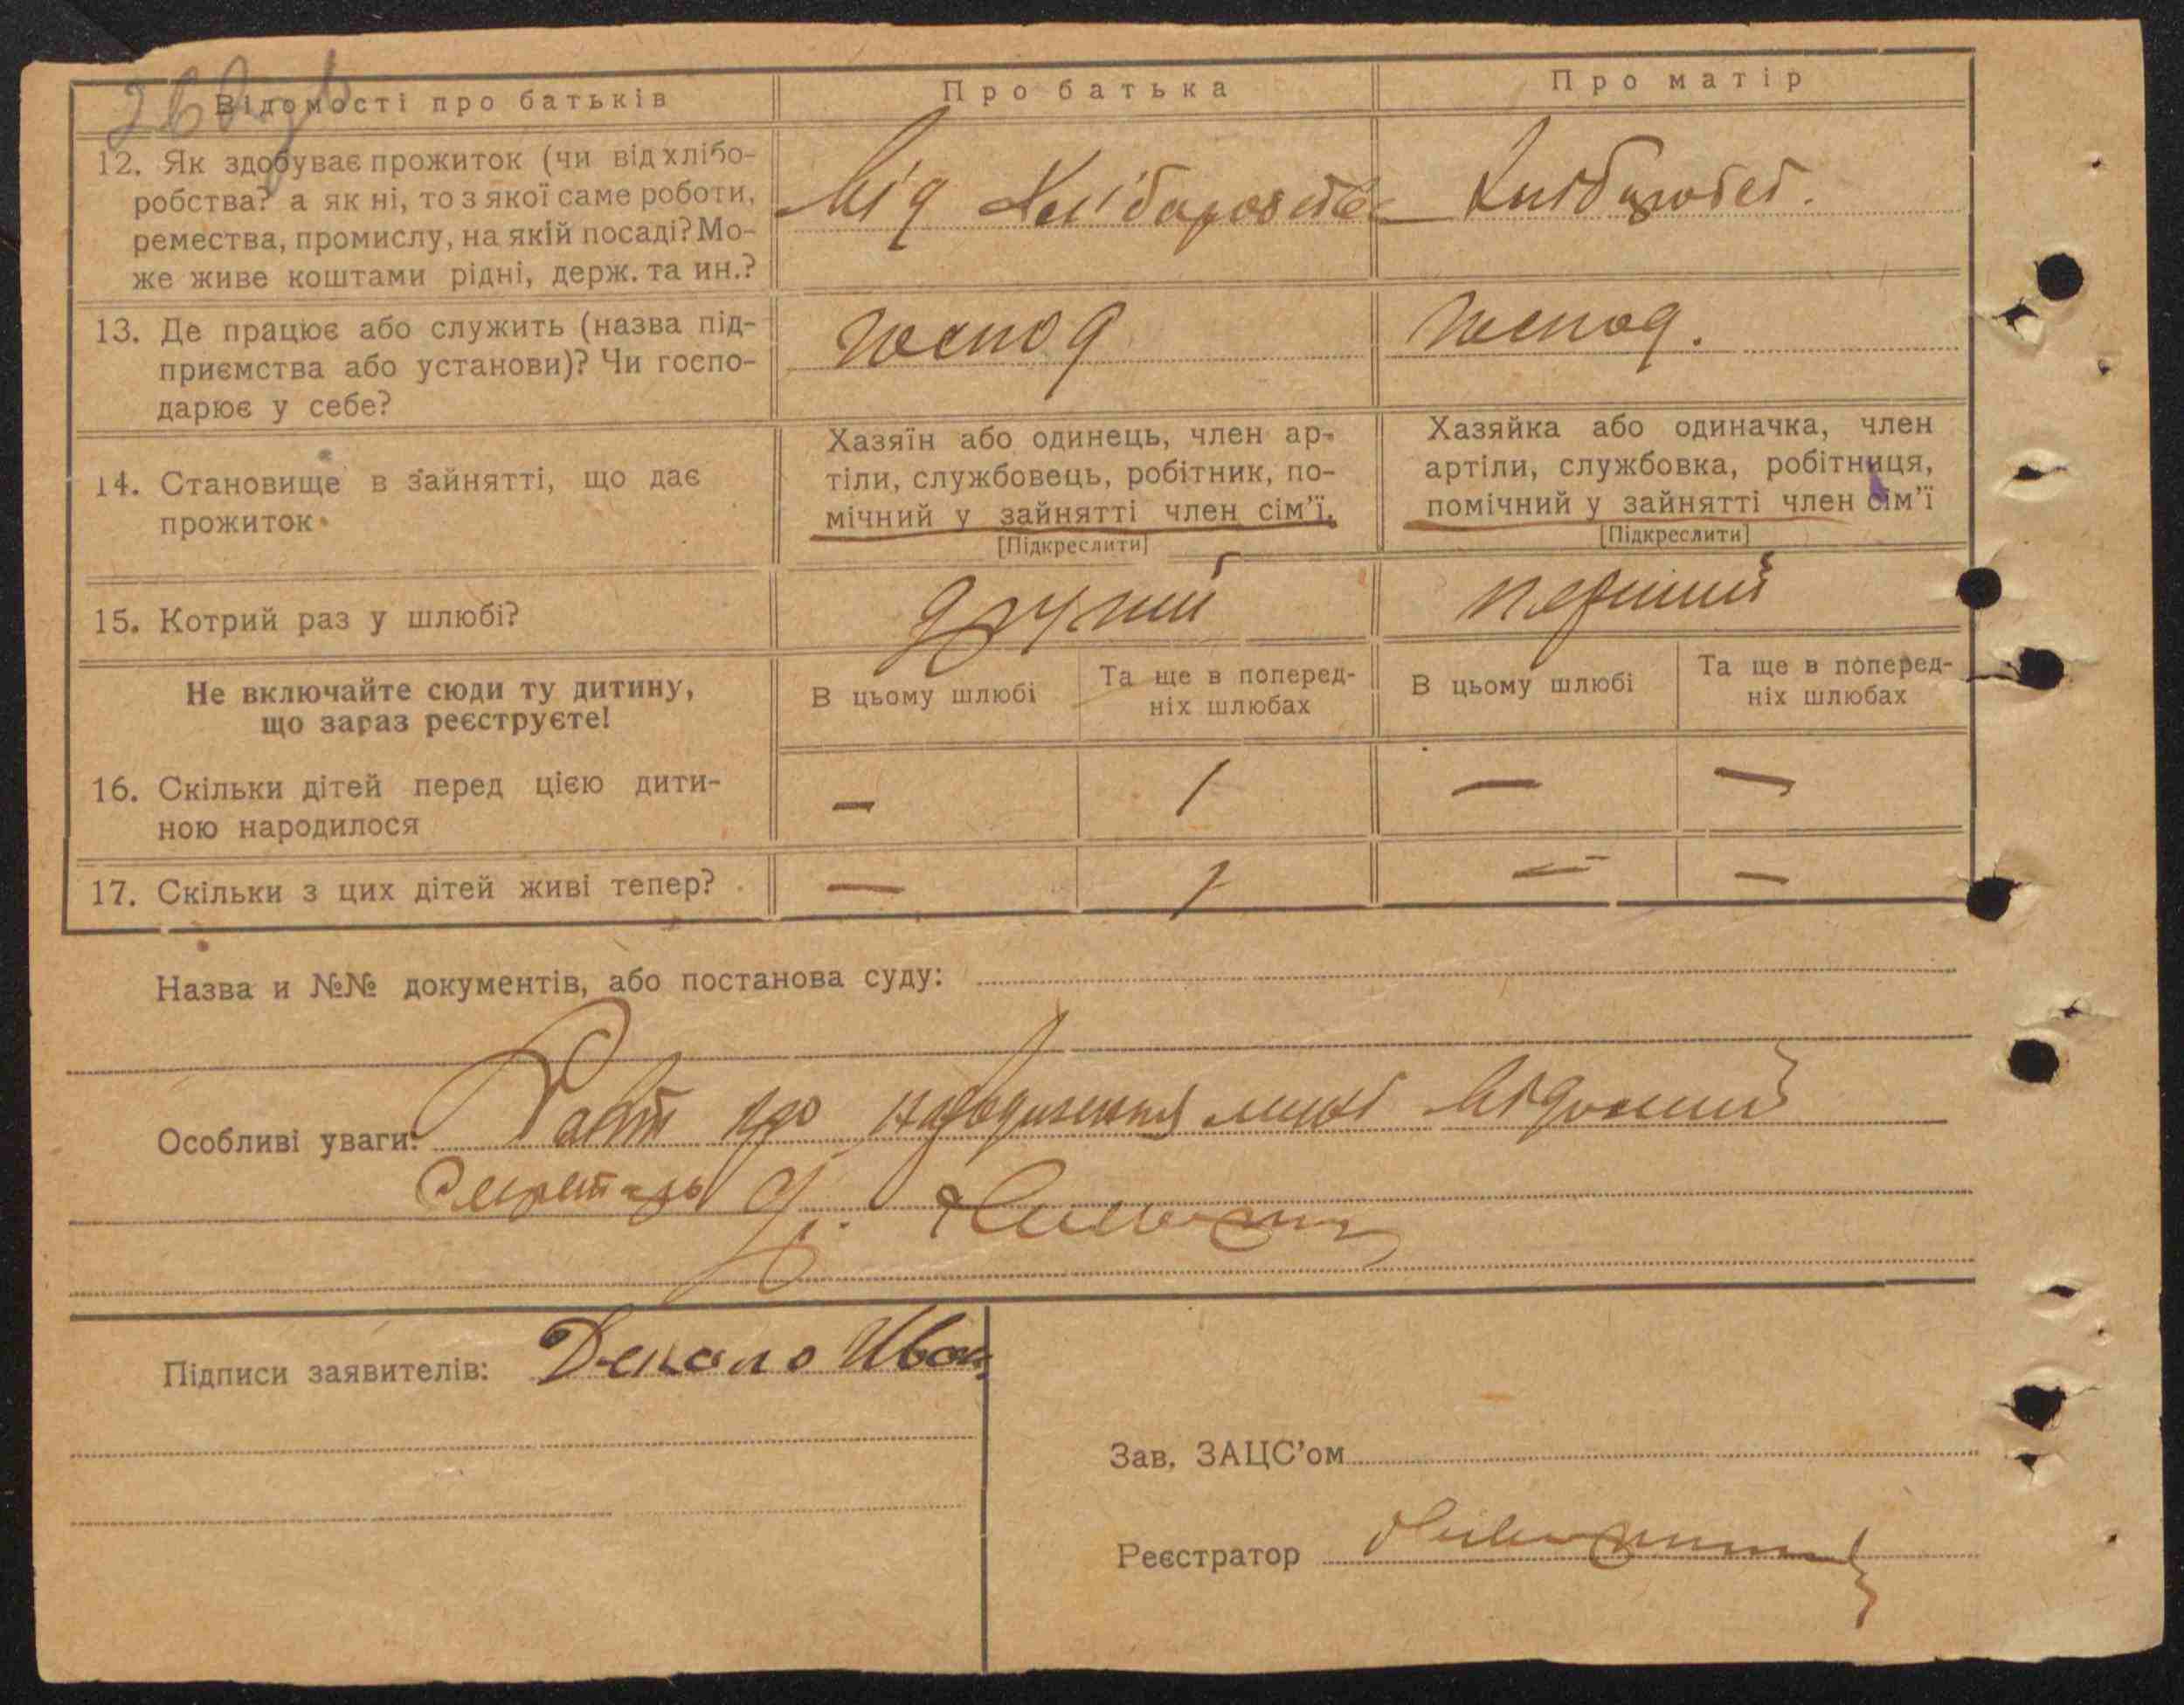 Відомості про батьків
Про батька
Про матір
12. Як здобуває прожиток (чи від хлібо-
робства? а як ні, то з якої саме роботи,
ремества, промислу, на якій посаді? Мо-
же живе коштами рідні, держ. та ин.?
від
13. Де працює або служить (назва під-
приємства або установи)? Чи госпо-
дарює у себе?
14. Становище в зайнятті, що дає
прожиток
Хазяїн або одинець, член ар-
тіли, службовець, робітник, по-
мічний у зайнятті член сім'ї.
[Підкреслити]
Хазяйка або одиначка, член
артіли, службовка, робітниця,
помічний у зайнятті член сім'ї
[Підкреслити]
15. Котрий раз у шлюбі?
другий
перший
Не включайте сюди ту дитину,
що зараз реєструєте!
В цьому шлюбі
Та ще в поперед-
ніх шлюбах
В цьому шлюбі
Та ще в поперед-
ніх шлюбах
16. Скільки дітей перед цією дити-
ною народилося
— 1 — —
17. Скільки з цих дітей живі тепер?
— 1 — —
Назва и №№ документів, або постанова суду:
Особливі уваги: Факт про народження мині відомий
Секретарь
Підписи заявителів: Декало Иван
Зав. ЗАЦС'ом
Реєстратор